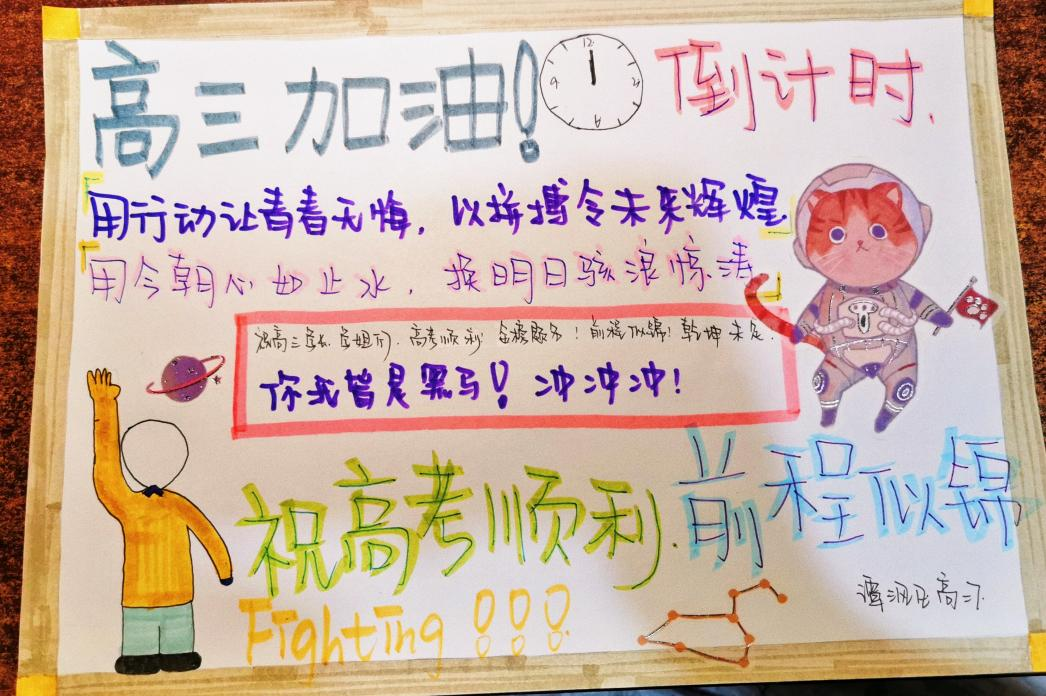 高三加油! 倒计时.
「用行动让青春无悔,以拼搏令未来辉煌」
「用今朝心如止水,换明日骇浪惊涛」
祝高三学长学姐们.高考顺利!金榜题名!前程似锦!乾坤未定.
你我皆是黑马!冲冲冲!
祝高考顺利.前程似锦
Fighting!!!